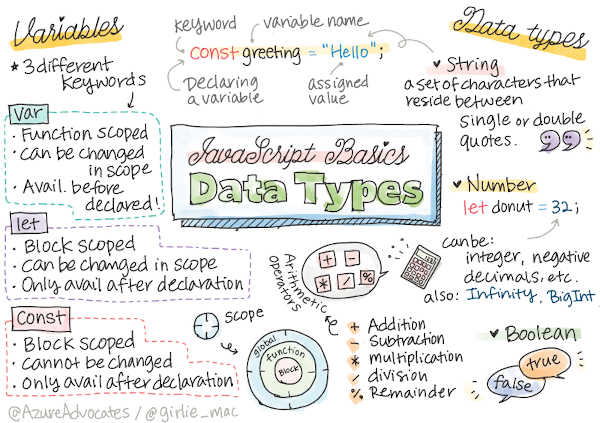 Variables
* 3 different
keywords
var
• Function scoped
• can be changed
in scope
• Avail. before
declared!
let
• Block scoped
• can be changed in scope
• Only avail after declaration
Const
• Block scoped
• cannot be changed
• only avail after declaration
@AzureAdvocates / @girlie_mac
keyword
variable name
const greeting = "Hello";
Declaring
a variable
assigned
value
JavaScript Basics
Data Types
Arithmetic
operators
+ -
* / %
scope
global
function
Block
+ Addition
- Subtraction
* multiplication
/ division
% Remainder
Data types
♥ String
a set of characters that
reside between
single or double
quotes.
♥ Number
let donut = 32;
can be:
integer, negative
decimals, etc.
also: Infinity, BigInt
♥ Boolean
true
false